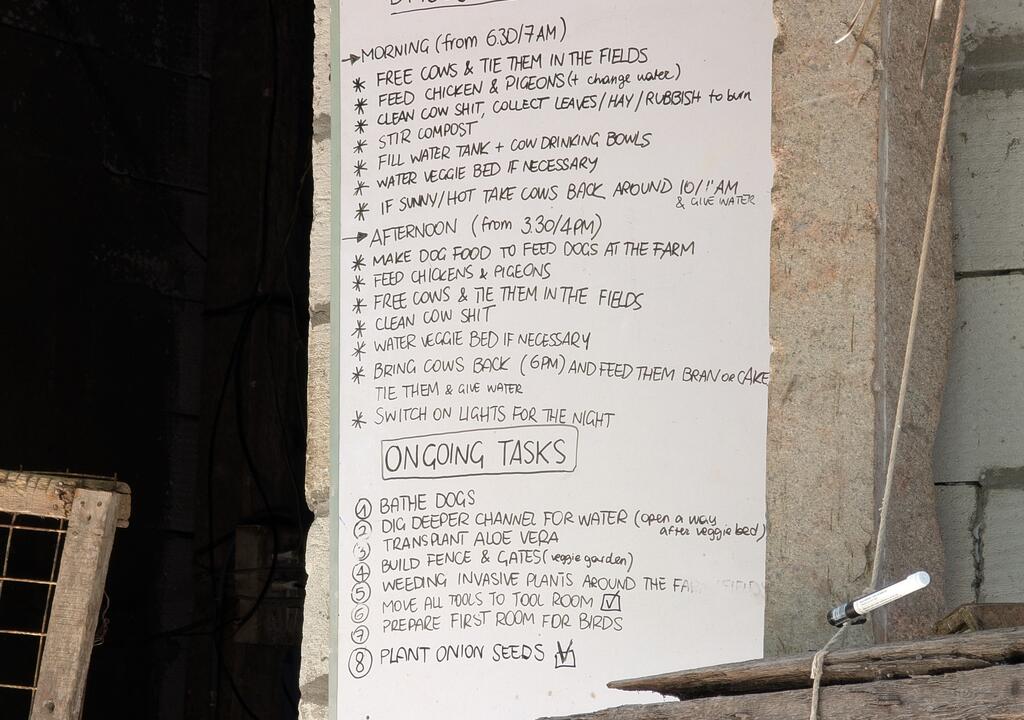 →MORNING (from 6.30/7AM)
* FREE COWS & TIE THEM IN THE FIELDS
* FEED CHICKEN & PIGEONS (+ change water)
* CLEAN COW SHIT, COLLECT LEAVES/HAY/RUBBISH to burn
* STIR COMPOST
* FILL WATER TANK + COW DRINKING BOWLS
* WATER VEGGIE BED IF NECESSARY
* IF SUNNY/HOT TAKE COWS BACK AROUND 10/11AM
& GIVE WATER
→AFTERNOON (from 3.30/4PM)
* MAKE DOG FOOD TO FEED DOGS AT THE FARM
* FEED CHICKENS & PIGEONS
* FREE COWS & TIE THEM IN THE FIELDS
* CLEAN COW SHIT
* WATER VEGGIE BED IF NECESSARY
* BRING COWS BACK (6PM) AND FEED THEM BRAN OR CAKE
TIE THEM & GIVE WATER
* SWITCH ON LIGHTS FOR THE NIGHT
ONGOING TASKS
① BATHE DOGS
② DIG DEEPER CHANNEL FOR WATER (open a way
after veggie bed)
③ TRANSPLANT ALOE VERA
④ BUILD FENCE & GATES (veggie garden)
⑤ WEEDING INVASIVE PLANTS AROUND THE
⑥ MOVE ALL TOOLS TO TOOL ROOM ☑
⑦ PREPARE FIRST ROOM FOR BIRDS
⑧ PLANT ONION SEEDS ☑